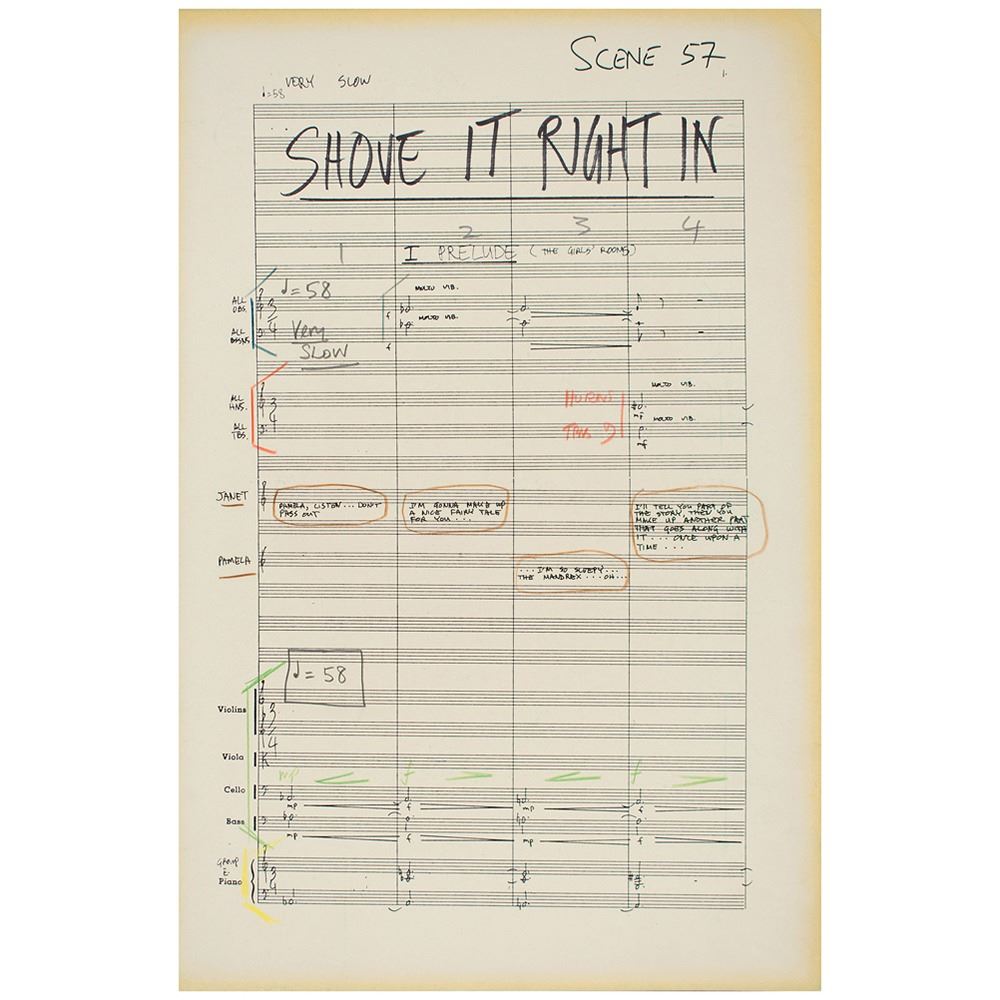 SCENE 57
VERY SLOW
♩=58
SHOVE IT RIGHT IN
1 2 3 4
I PRELUDE (THE GIRLS' ROOMS)
♩= 58
MOLTO VIB.
ALL
OBS.
3
4
f
MOLTO VIB.
ALL
BSSNS
Very
SLOW
f
MOLTO VIB.
ALL
HNS.
3
4
HORNS
mf
MOLTO VIB.
ALL
TBS.
mf
JANET
PAMELA, LISTEN... DON'T
PASS OUT
I'M GONNA MAKE UP
A NICE FAIRY TALE
FOR YOU...
I'LL TELL YOU PART OF
THE STORY, THEN YOU
MAKE UP ANOTHER PART
THAT GOES ALONG WITH
IT... ONCE UPON A
TIME...
PAMELA
...I'M SO SLEEPY...
THE MANDREX...OH...
♩= 58
Violins
3
4
Viola
mp f f
Cello
mp f mp f
Bass
mp f mp f
GROUP
E
Piano
3
4